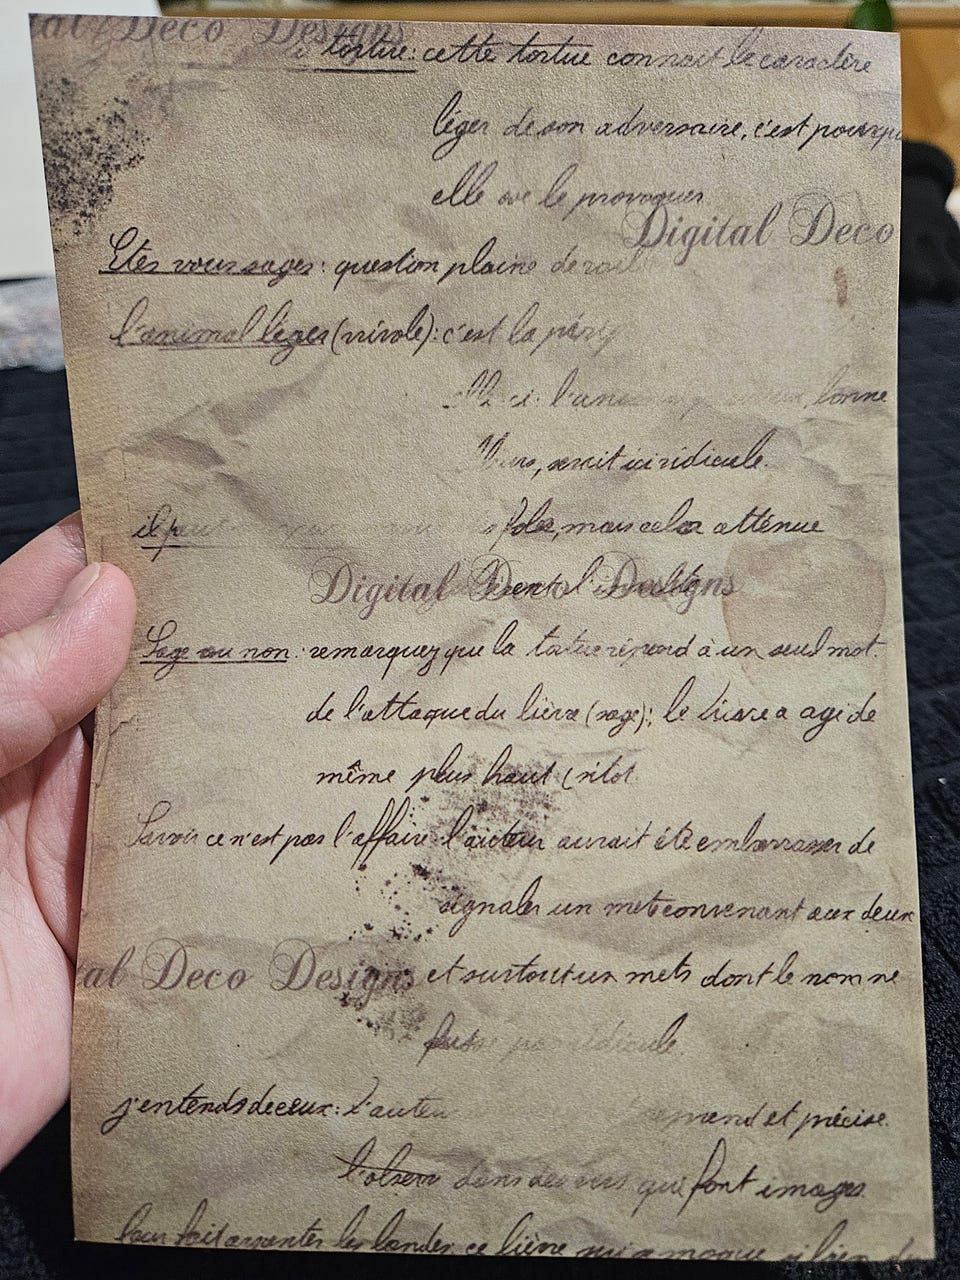 Deco Designs
tortue: cette tortue connait le caractère
léger de son adversaire, c'est pourqu
elle ose le provoquer
Digital Deco
Etes vous sages: question plaine de
l'animal léger (rivole): c'est la
lièvre, serait ici ridicule.
il peut mais cela atténue
Digital Deco Designs
Sage ou non: remarquez que la tortue répond à un seul mot.
de l'attaque du lièvre (sage); le lièvre a agi de
même plus haut
Savoir ce n'est pas l'affaire l'auteur aurait été embarrasser de
signaler un mets convenant aux deux
tal Deco Designs et surtout un mets dont le nom ne
fusse pas ridicule.
j'entends de ceux: l'auteu prend et précise.
l'observ dans des vers qui font images
les landes ce lièvre qui a moqué si bien